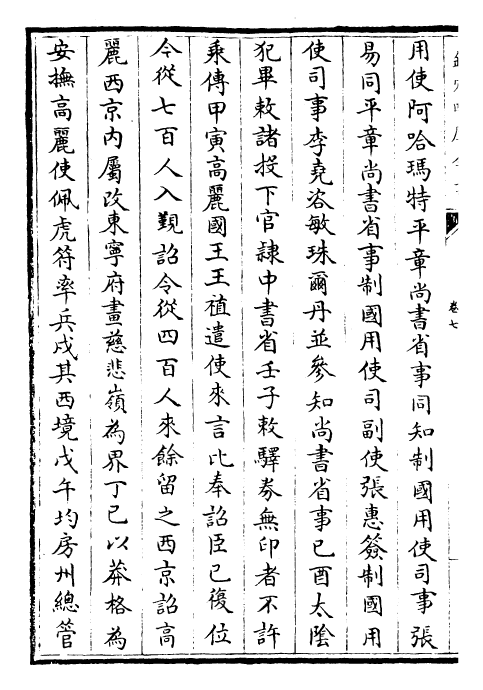 卷七
用使阿哈瑪特平章尚書省事同知制國用使司事張
易同平章尚書省事制國用使司副使張惠簽制國用
使司事李堯咨敏珠爾丹並參知尚書省事已酉太陰
犯畢敕諸投下官隸中書省壬子敕驛券無印者不許
乘傳甲寅高麗國王王禃遣使來言比奉詔臣已復位
今從七百人入覲詔令從四百人來餘留之西京詔高
麗西京內屬改東寧府畫慈悲嶺為界丁已以莽格為
安撫高麗使佩虎符率兵戍其西境戊午均房州總管